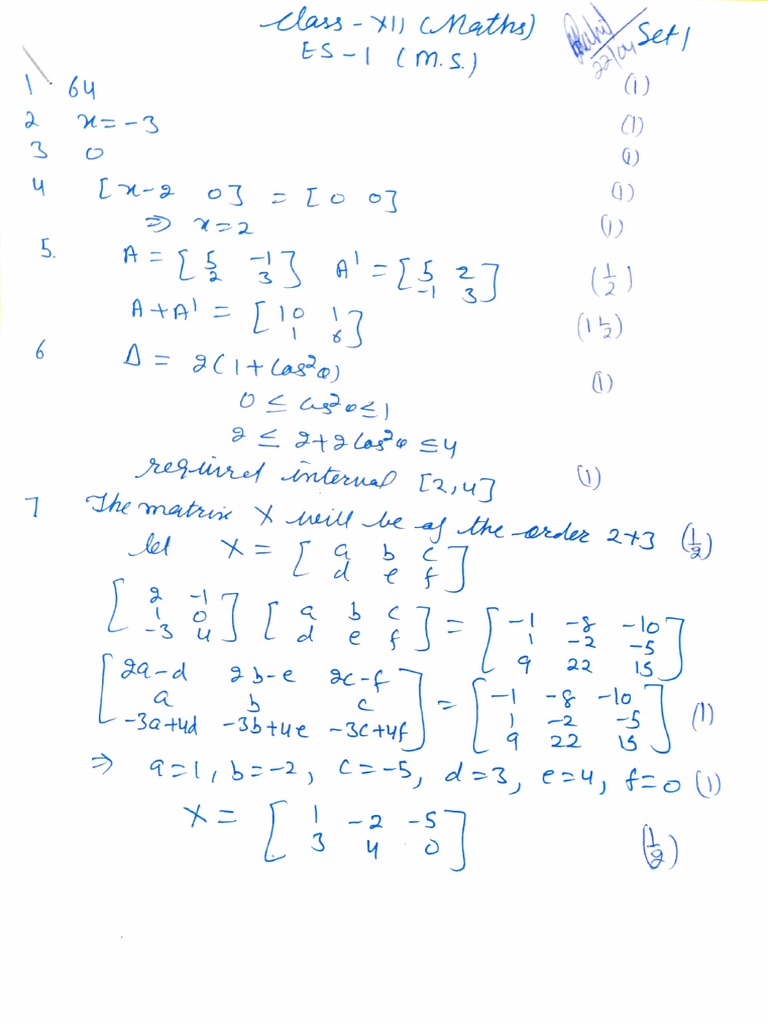 Class-XII (Maths)
Set 1
ES-1 (M.S.)
22/04
1 64 (1)
2 x=-3 (1)
3 0 (1)
4 [x-2 0] = [0 0] (1)
⇒ x=2 (1)
5. A = [5 -1; 2 3] A' = [5 2; -1 3] (1/2)
A+A' = [10 1; 1 6] (1 1/2)
6 Δ = 2(1+cos²θ) (1)
0 ≤ cos²θ ≤ 1
2 ≤ 2+2cos²θ ≤ 4
required interval [2,4] (1)
7 The matrix X will be of the order 2×3 (1/2)
let X = [a b c; d e f]
[2 -1; 1 0; -3 4] [a b c; d e f] = [-1 -8 -10; 1 -2 -5; 9 22 15]
[2a-d 2b-e 2c-f; a b c; -3a+4d -3b+4e -3c+4f] = [-1 -8 -10; 1 -2 -5; 9 22 15] (1)
⇒ a=1, b=-2, c=-5, d=3, e=4, f=0 (1)
X = [1 -2 -5; 3 4 0] (1/2)